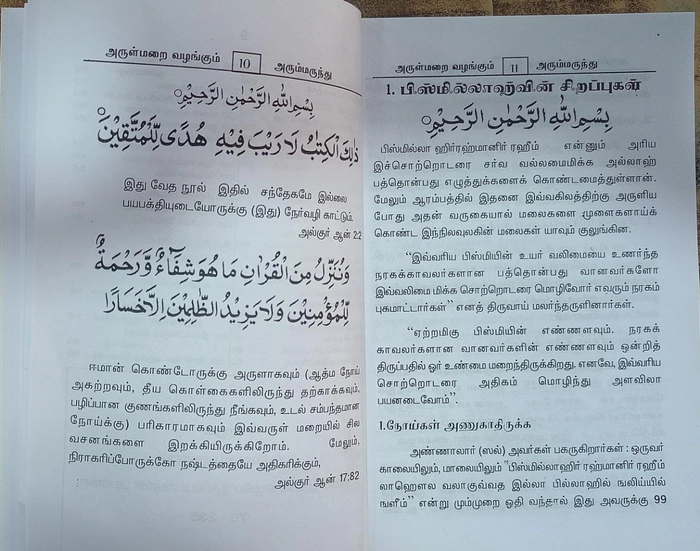 அருள்மறை வழங்கும் 10 அரும்மருந்து
بِسْمِ اللّٰهِ الرَّحْمٰنِ الرَّحِيْمِ
ذٰلِكَ الْكِتٰبُ لَا رَيْبَ فِيْهِ هُدًى لِّلْمُتَّقِيْنَ
இது வேத நூல் இதில் சந்தேகமே இல்லை
பயபக்தியுடையோருக்கு (இது) நேர்வழி காட்டும்.
அல்குர் ஆன் 2:2
وَنُنَزِّلُ مِنَ الْقُرْاٰنِ مَا هُوَ شِفَآءٌ وَّرَحْمَةٌ
لِّلْمُؤْمِنِيْنَ وَلَا يَزِيْدُ الظّٰلِمِيْنَ اِلَّا خَسَارًا
ஈமான் கொண்டோருக்கு அருளாகவும் (ஆத்ம நோய்
அகற்றவும், தீய கொள்கைகளிலிருந்து தற்காக்கவும்,
பழிப்பான குணங்களிலிருந்து நீங்கவும், உடல் சம்பந்தமான
நோய்க்கு) பரிகாரமாகவும் இவ்வருள் மறையில் சில
வசனங்களை இறக்கியிருக்கிறோம். மேலும்,
நிராகரிப்போருக்கோ நஷ்டத்தையே அதிகரிக்கும்,
அல்குர் ஆன் 17:82
அருள்மறை வழங்கும் 11 அரும்மருந்து
1. பிஸ்மில்லாஹ்வின் சிறப்புகள்
بِسْمِ اللّٰهِ الرَّحْمٰنِ الرَّحِيْمِ
பிஸ்மில்லா ஹிர்ரஹ்மானிர் ரஹீம் என்னும் அரிய
இச்சொற்றொடரை சர்வ வல்லமைமிக்க அல்லாஹ்
பத்தொன்பது எழுத்துக்களைக் கொண்டமைத்துள்ளான்.
மேலும் ஆரம்பத்தில் இதனை இவ்வகிலத்திற்கு அருளிய
போது அதன் வருகையால் மலைகளை முளைகளாய்க்
கொண்ட இந்நிலவுலகின் மலைகள் யாவும் குலுங்கின.
“இவ்வரிய பிஸ்மியின் உயர் வலிமையை உணர்ந்த
நரகக்காவலர்களான பத்தொன்பது வானவர்களோ
இவ்வலிமை மிக்க சொற்றொடரை மொழிவோர் எவரும் நரகம்
புகமாட்டார்கள்” எனத் திருவாய் மலர்ந்தருளினார்கள்.
“ஏற்றமிகு பிஸ்மியின் எண்ணளவும். நரகக்
காவலர்களான வானவர்களின் எண்ணளவும் ஒன்றித்
திருப்பதில் ஓர் உண்மை மறைந்திருக்கிறது. எனவே, இவ்வரிய
சொற்றொடரை அதிகம் மொழிந்து அளவிலா
பயனடைவோம்”.
1.நோய்கள் அணுகாதிருக்க
அண்ணலார் (ஸல்) அவர்கள் பகருகிறார்கள் : ஒருவர்
காலையிலும், மாலையிலும் “பிஸ்மில்லாஹிர் ரஹ்மானிர் ரஹீம்
லாஹௌல வலாகுவ்வத இல்லா பில்லாஹில் ஙலிய்யில்
ஙளீம்” என்று மும்முறை ஓதி வந்தால் இது அவருக்கு 99